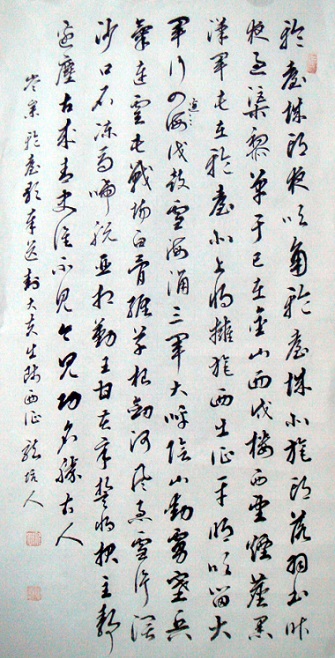 輪臺城頭夜吹角輪臺城北旄頭落羽書昨
夜過渠黎單于已在金山西戍樓西望煙塵黑
漢軍屯在輪臺北上將擁旄西出征平明吹笛大
軍行四邊伐鼓雪海湧三軍大呼陰山動虜塞兵
氣連雲屯戰場白骨纏草根劍河風急雪片闊
沙口石凍馬蹄脫亞相勤王甘苦辛誓將報主靜
邊塵古來青史誰不見今見功名勝古人
岑參輪臺歌奉送封大夫出師西征